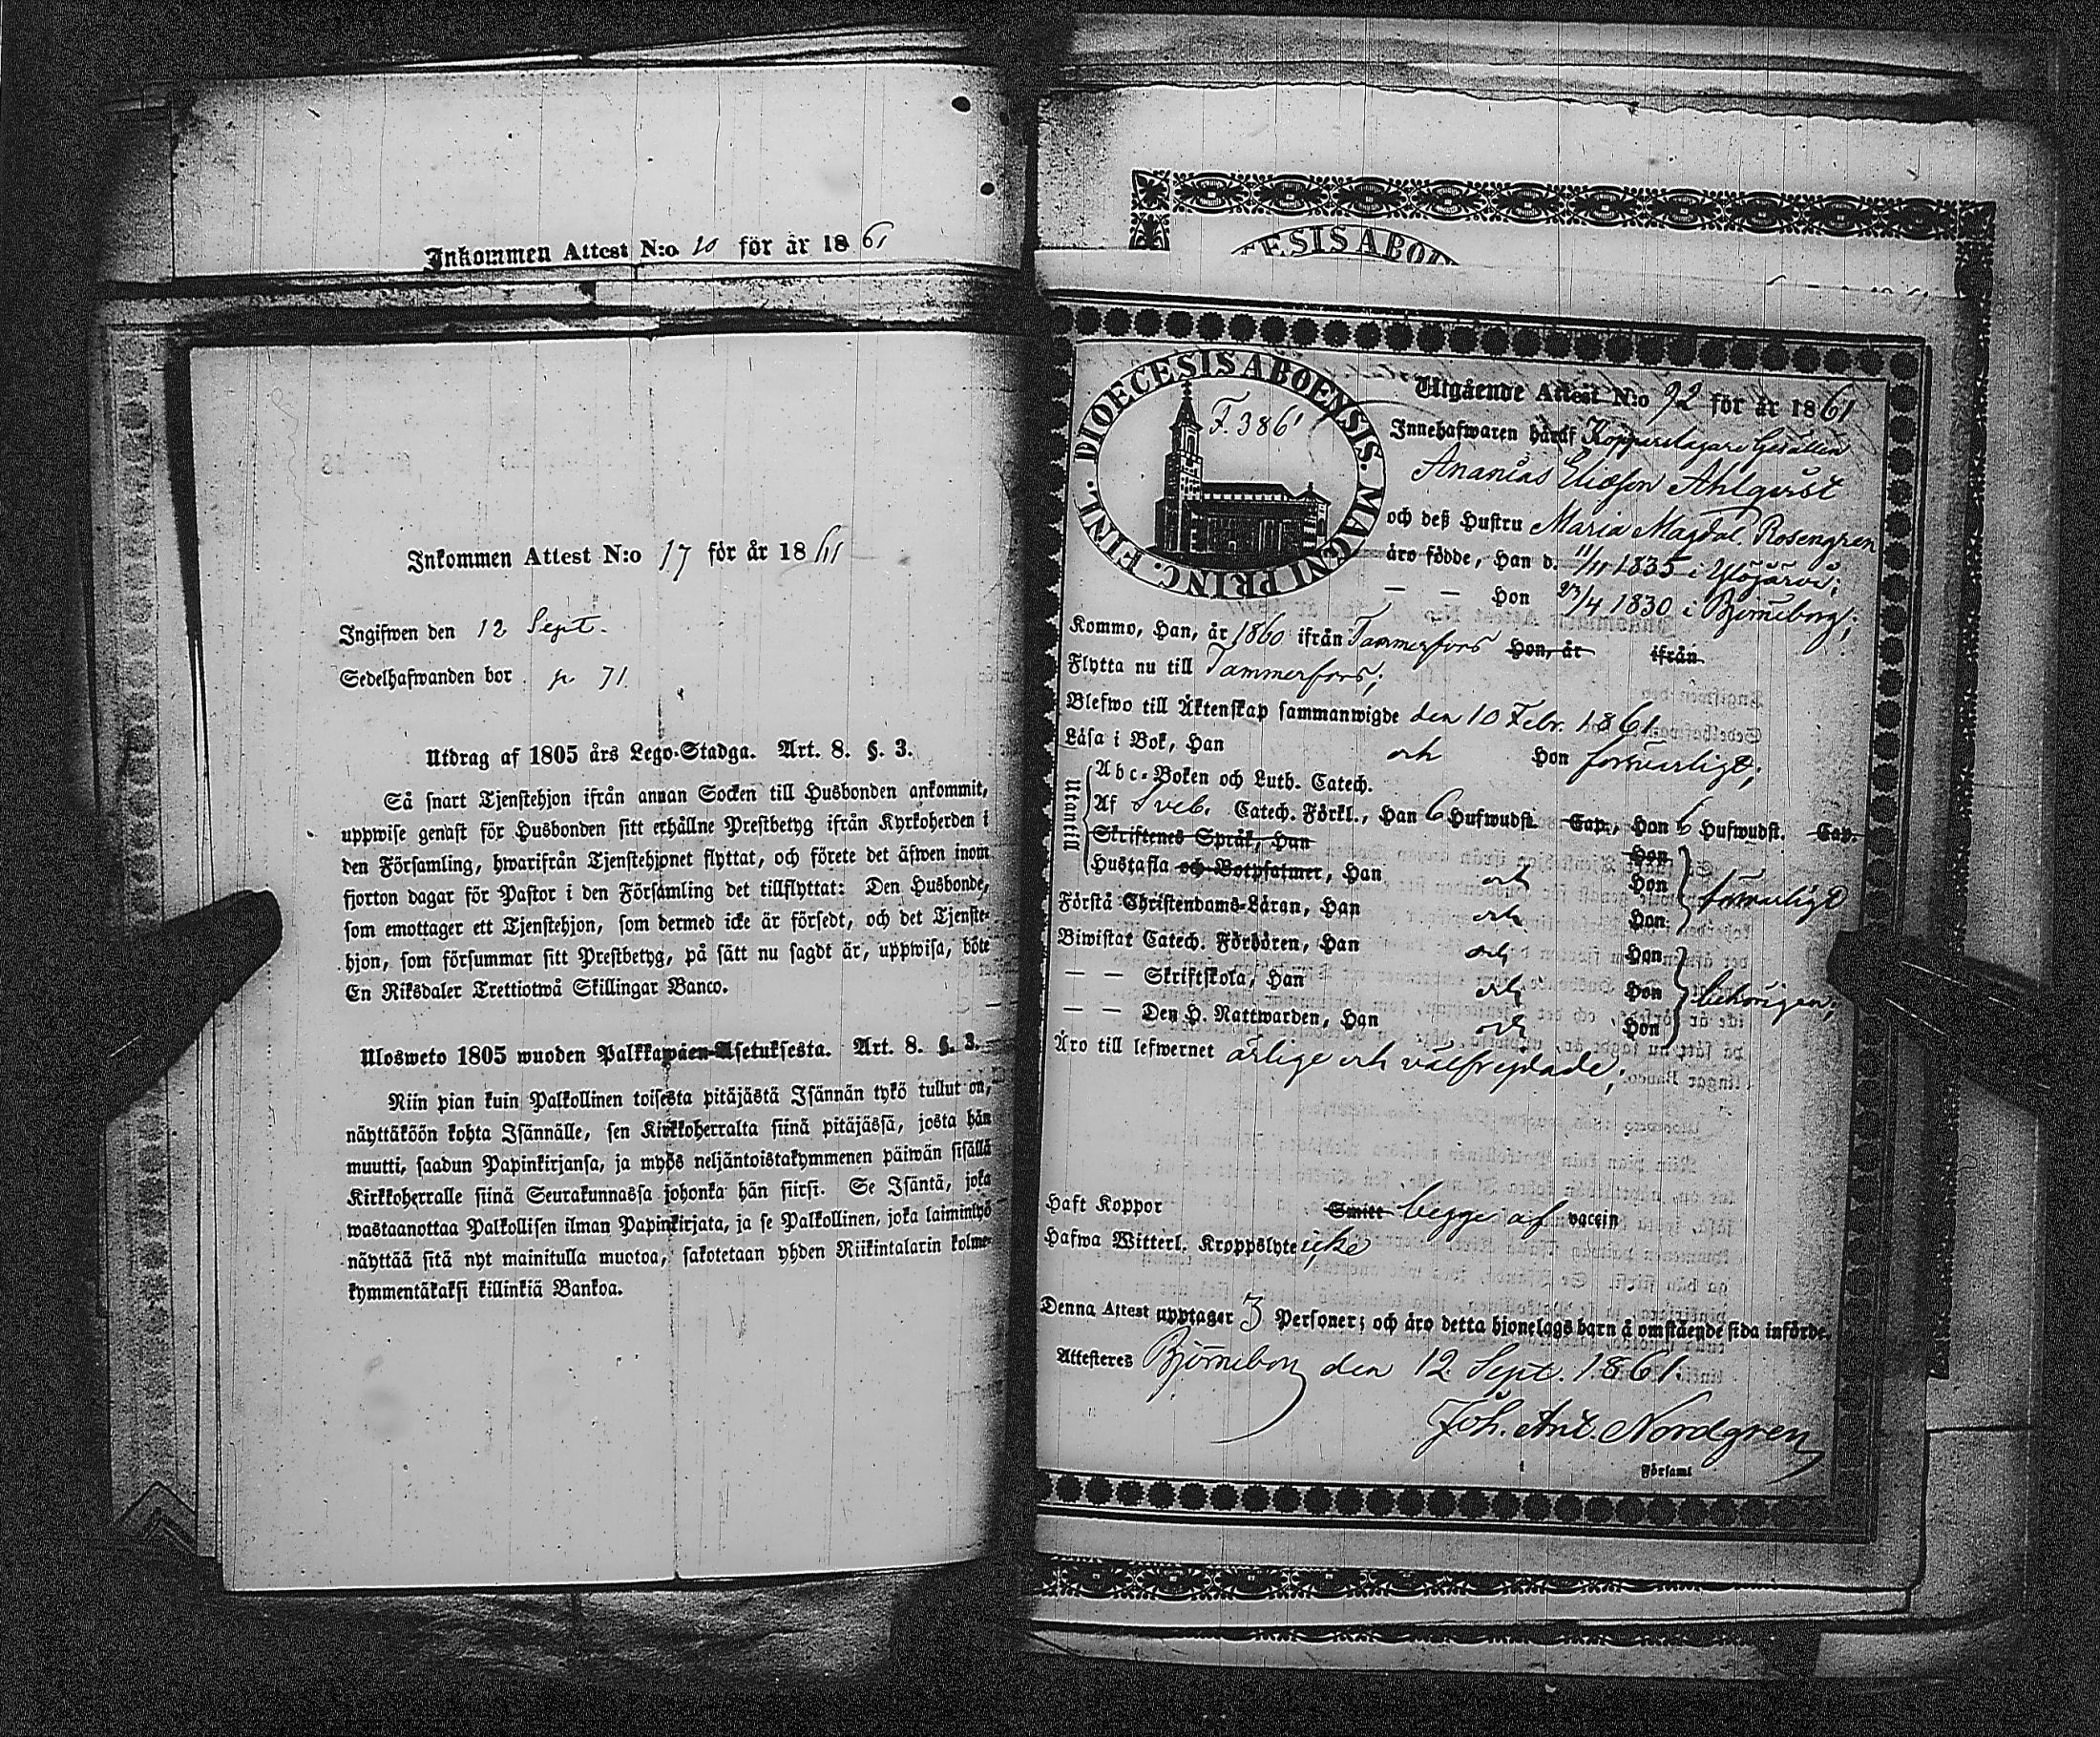 Inkommen Attest N:o 20 för år 1861
Inkommen Attest N:o 17 för år 1861
Ingifwen den 12 Sept.
Sedelhafwanden bor p. 71.
Utdrag af 1805 års Lego-Stadga. Art. 8. §. 3.
Så snart Tjenstehjon ifrån annan Socken till Husbonden ankommit,
uppwise genast för Husbonden sitt erhållne Prestbetyg ifrån Kyrkoherden i
den Församling, hwarifrån Tjenstehjonet flyttat, och förete det äfwen inom
fjorton dagar för Pastor i den Församling det tillflyttat: Den Husbonde,
som emottager ett Tjenstehjon, som dermed icke är försedt, och det Tjenste-
hjon, som försummar sitt Prestbetyg, på sätt nu sagdt är, uppwisa, böte
En Riksdaler Trettiotwå Skillingar Banco.
Ulosweto 1805 wuoden Palkkawäen-Asetuksesta. Art. 8. §. 3.
Niin pian kuin Palkollinen toisesta pitäjästä Isännän tykö tullut on,
näyttäköön kohta Isännälle, sen Kirkkoherralta siinä pitäjässä, josta hän
muutti, saadun Papinkirjansa, ja myös neljäntoistakymmenen päiwän sisällä
Kirkkoherralle siinä Seurakunnassa johonka hän siirsi. Se Isäntä, joka
wastaanottaa Palkollisen ilman Papinkirjata, ja se Palkollinen, joka laiminlyö
näyttää sitä nyt mainitulla muotoa, sakotetaan yhden Riikintalarin kolme-
kymmentäkaksi killinkiä Bankoa.
ESIS ABO
DIOECESIS ABOENSIS. MAGNI PRINC. FINL.
F. 386
Utgående Attest N:o 92 för år 1861
Innehafwaren häraf Kopparslagare Gesällen
Ananias Eliasson Ahlqvist
och deß Hustru Maria Magdal Rosengren
äro födde, Han d. 11/11 1835 i Ylöjärvi;
— — Hon 27/4 1830 i Björneborg;
Kommo, Han, år 1860 ifrån Tammerfors Hon, år ifrån
Flytta nu till Tammerfors;
Blefwo till Äktenskap sammanwigde den 10 Febr. 1861.
Läsa i Bok, Han och Hon försvarligt;
Utantill
Abc-Boken och Luth. Catech.
Af Sveb. Catech. Förkl., Han 6 Hufwudst. Cap., Hon 6 Hufwudst. Cap.
Skriftenes Språk, Han Hon
Hustafla och Botpsalmer, Han och Hon försvarligt
Förstå Christendoms-Läran, Han och Hon
Biwistat Catech. Förhören, Han och Hon
— — Skriftskola, Han och Hon behörigen;
— — Den H. Nattwarden, Han och Hon
Äro till lefwernet ärlige och välfrejdade;
Haft Koppor Smitt begge af vaccin
Hafwa Witterl. Kroppslyte icke
Denna Attest upptager 3 Personer; och äro detta hjonelags barn å omstående sida införde.
Attesteres Björneborg den 12 Sept. 1861.
Joh. Ant. Nordgren
Församl